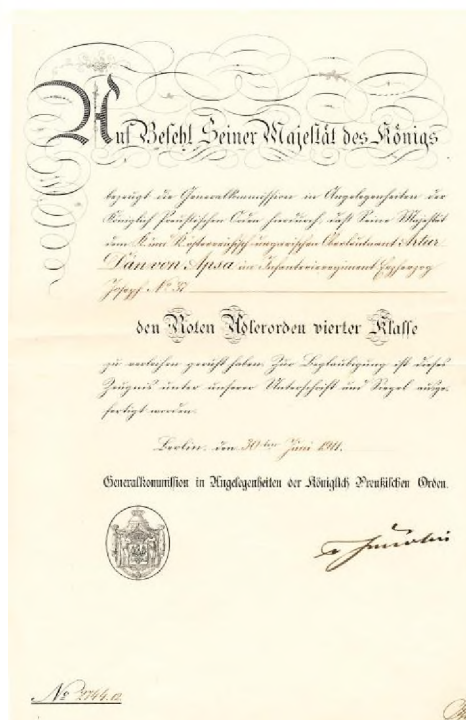 Auf Befehl Seiner Majestät des Königs
bezeugt die Generalkommission in Angelegenheiten der
Königlich Preußischen Orden hierdurch, daß Seine Majestät
dem K. und K. österreichisch-ungarischen Oberleutnant Artur
Dán von Apsa im Infanterieregiment Erzherzog
Joseph No 37
den Roten Adlerorden vierter Klasse
zu verleihen geruht haben. Zur Beglaubigung ist dieses
Zeugnis unter unserer Unterschrift und Siegel ausge-
fertigt worden.
Berlin, den 30ten Juni 1911.
Generalkommission in Angelegenheiten der Königlich Preußischen Orden.
No